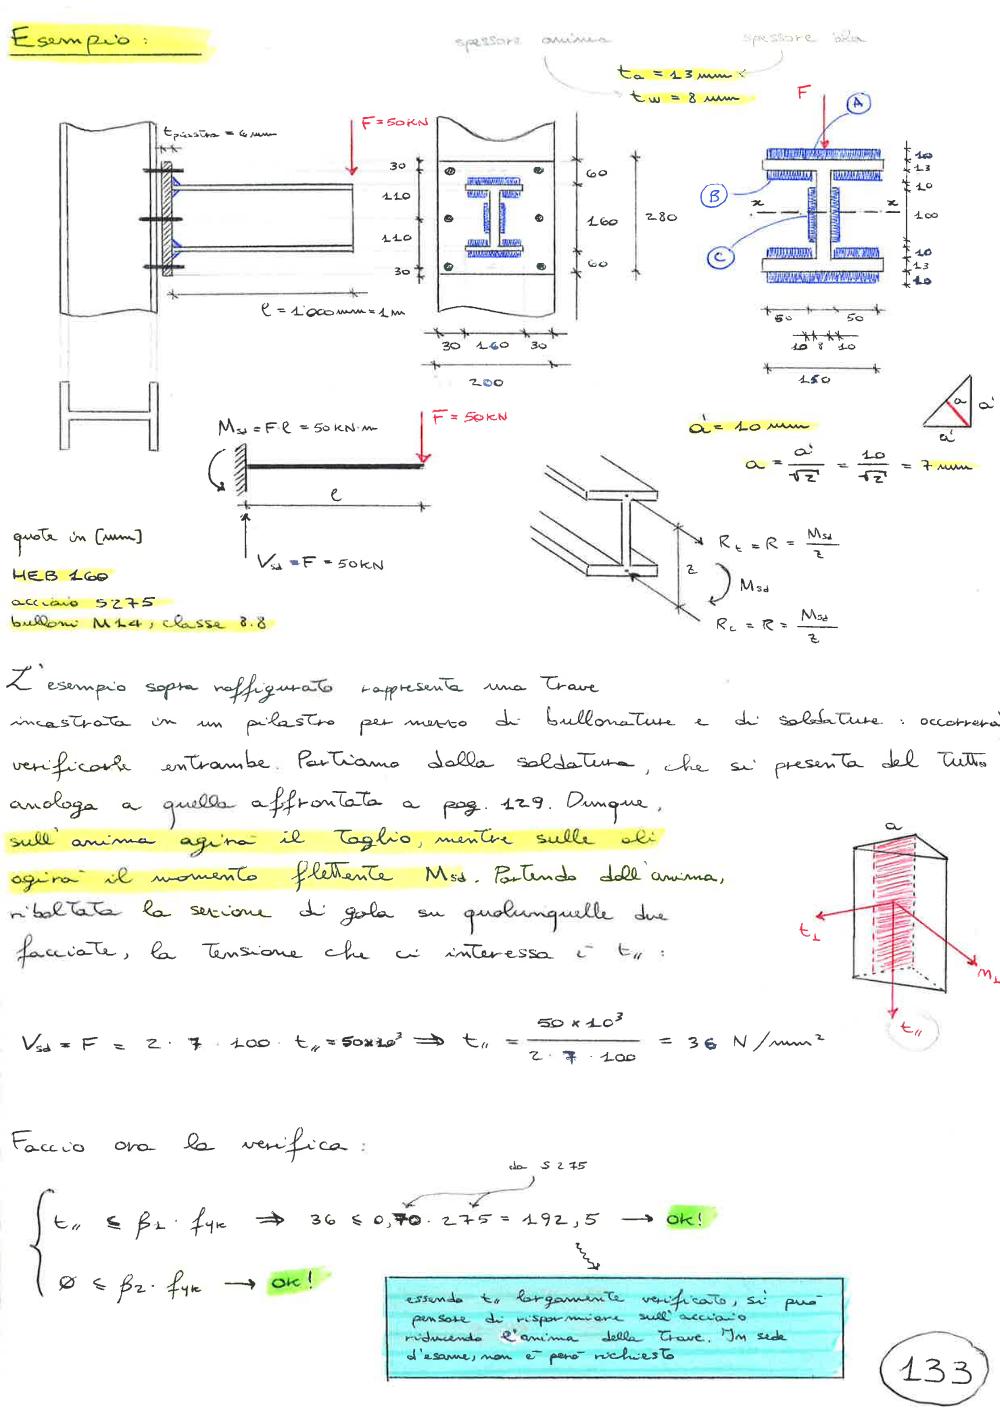 Esempio:
spessore anima
spessore ala
ta = 13 mm
tw = 8 mm
F
A
tpiastra = 6 mm
F = 50 KN
30
110
110
30
60
160
60
280
B
C
x
x
10
13
10
100
10
13
10
ℓ = 1'000 mm = 1 m
30 160 30
200
50 50
10 8 10
Msd = F·ℓ = 50 KN·m
F = 50 KN
ℓ
Vsd = F = 50 KN
a' = 10 mm
a = a'/√2 = 10/√2 = 7 mm
a
a'
a'
quote in [mm]
HEB 160
acciaio S275
bulloni M14, classe 8.8
z
Rt = R = Msd/z
Msd
Rc = R = Msd/z
L'esempio sopra raffigurato rappresenta una trave
incastrata in un pilastro per mezzo di bullonature e di saldature: occorrerà
verificarle entrambe. Partiamo dalla saldatura, che si presenta del tutto
analoga a quella affrontata a pag. 129. Dunque,
sull'anima agirà il taglio, mentre sulle ali
agirà il momento flettente Msd. Partendo dall'anima,
ribaltata la sezione di gola su qualunquelle due
facciate, la tensione che ci interessa è t//:
a
t⊥
n⊥
t//
Vsd = F = 2 · 7 · 100 · t// = 50x10³ ⇒ t// = 50 x 10³ / 2 · 7 · 100 = 36 N/mm²
Faccio ora la verifica:
da S275
t// ≤ β1 · fyk ⇒ 36 ≤ 0,70 · 275 = 192,5 → ok!
∅ ≤ β2 · fyk → ok!
essendo t// largamente verificato, si può
pensare di risparmiare sull'acciaio
riducendo l'anima della trave. In sede
d'esame, non è però richiesto
133